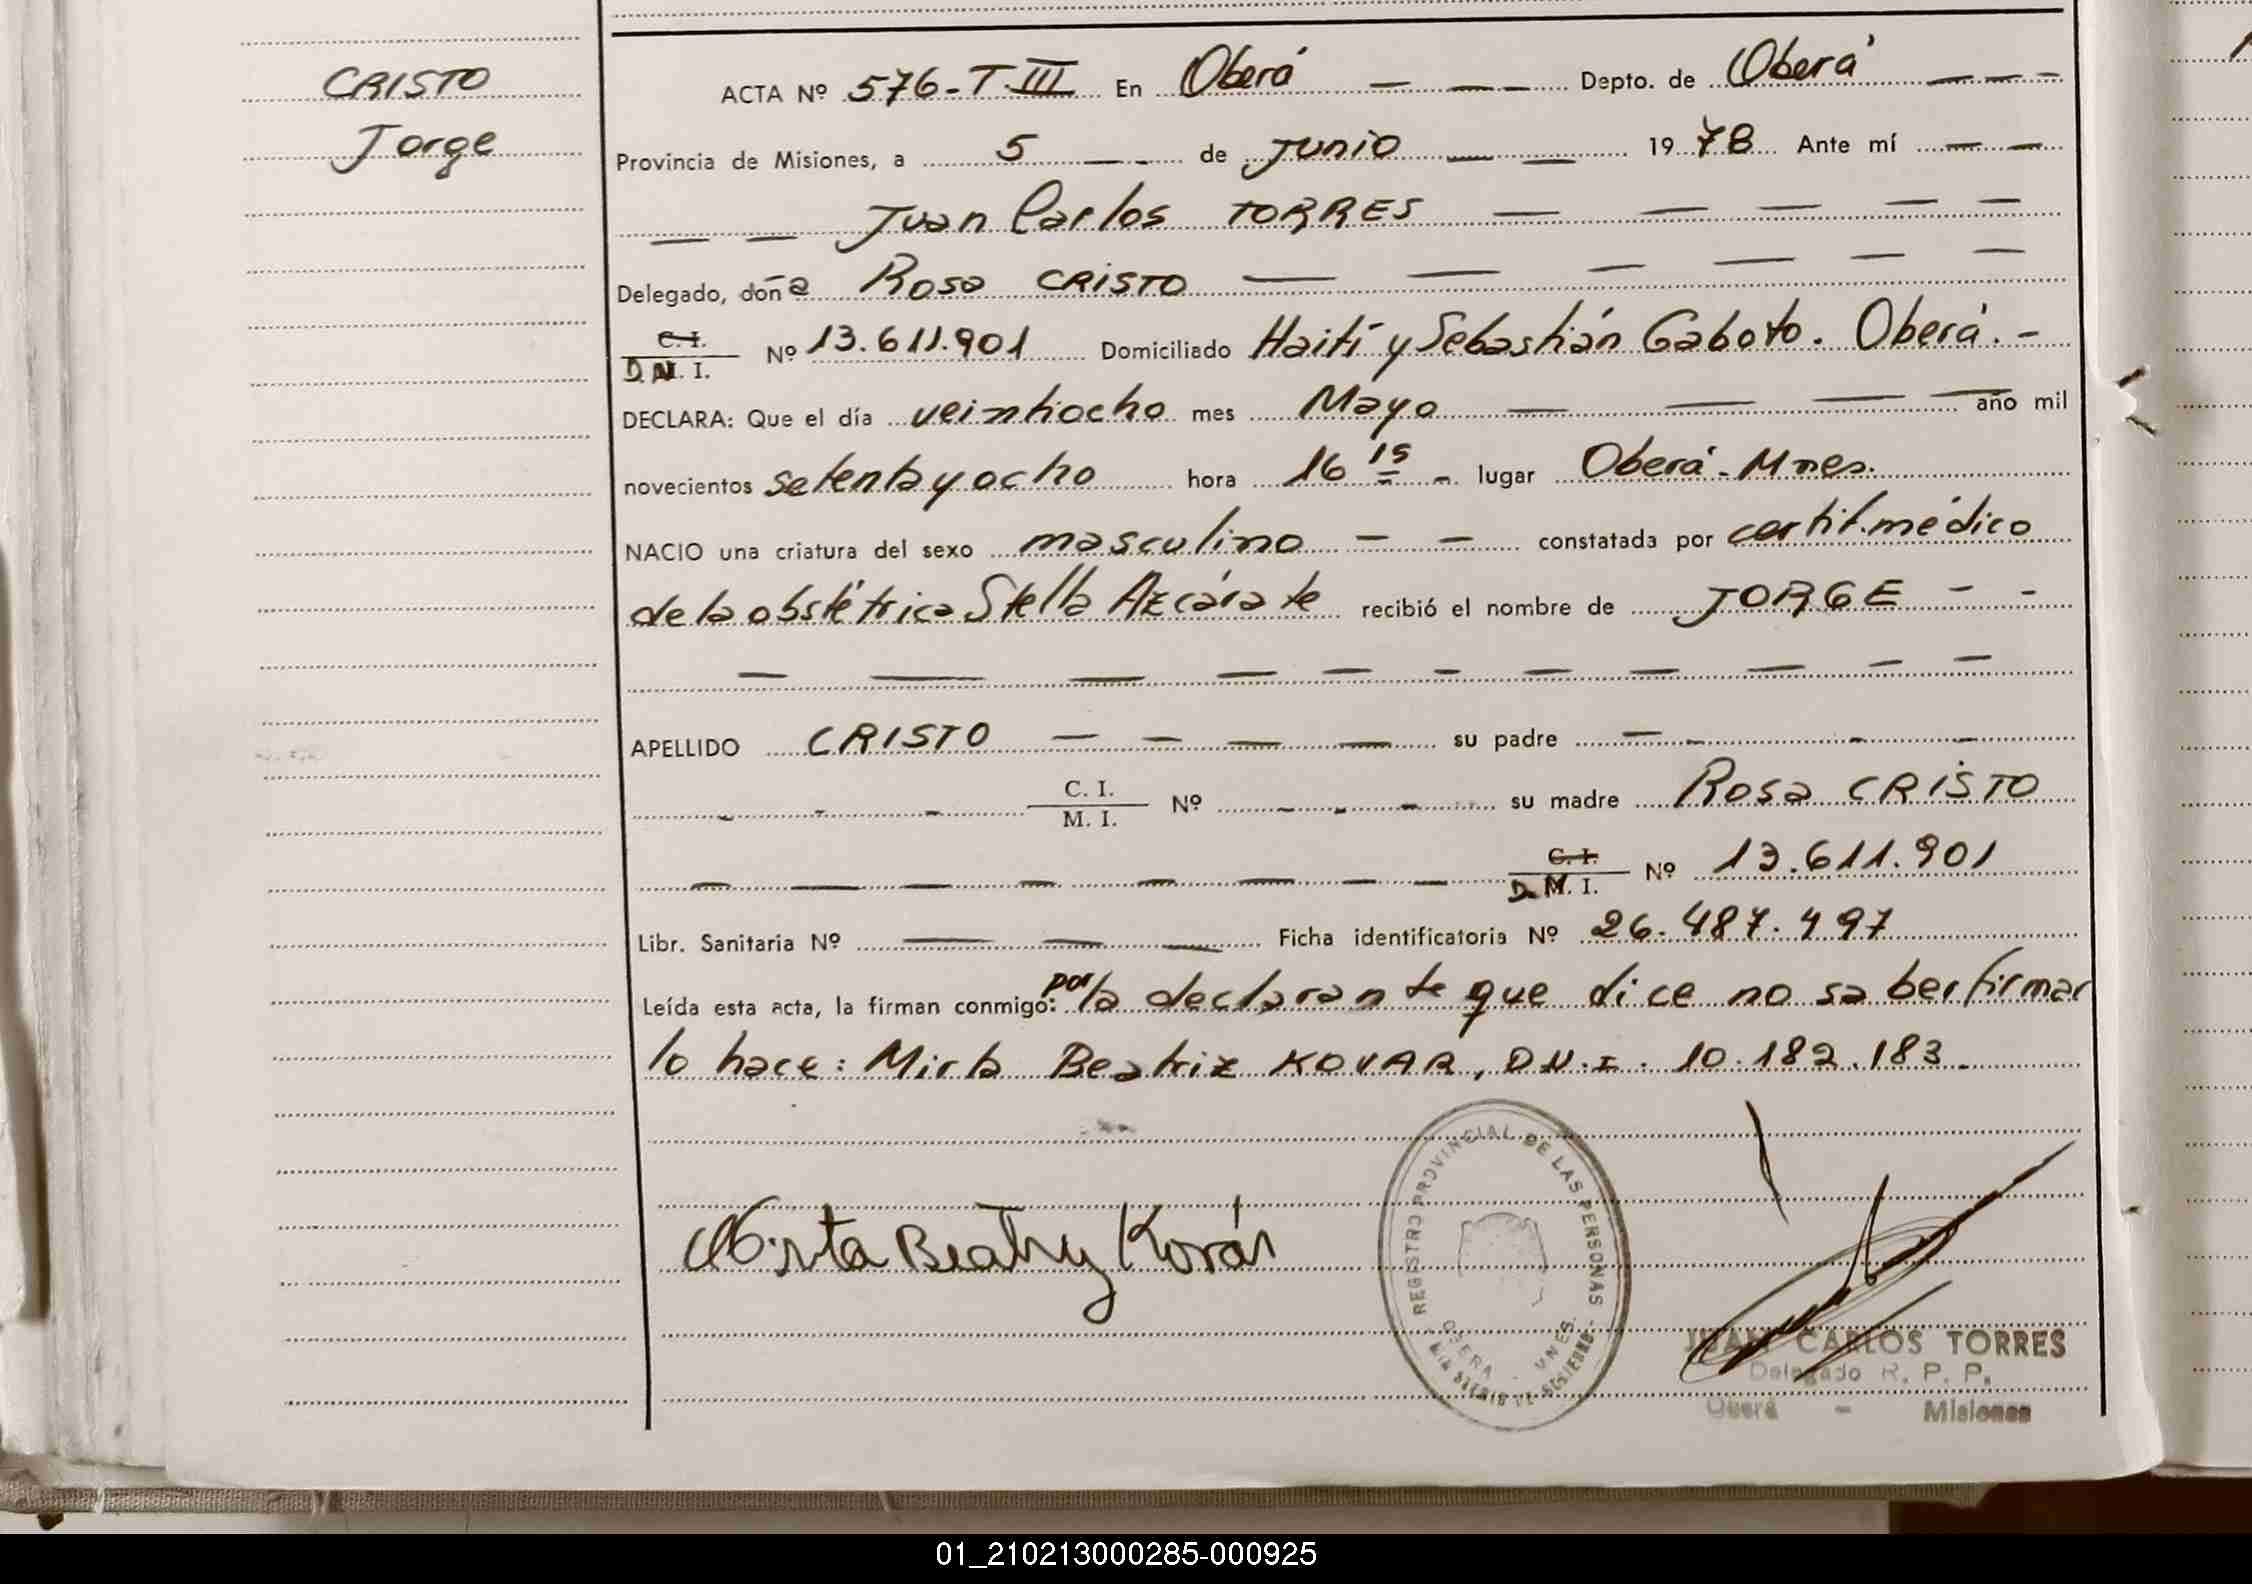 CRISTO
Jorge
ACTA Nº 576-T.III En Oberá — — — Depto. de Oberá — — —
Provincia de Misiones, a 5 — - de Junio — — 1978 Ante mí — —
— — Juan Carlos TORRES — — — — —
Delegado, doña Rosa CRISTO — — — — — —
C. I.
D.N.I. Nº 13.611.901 Domiciliado Haití y Sebastián Gaboto. Oberá.-
DECLARA: Que el día veintiocho mes Mayo — — — — año mil
novecientos setenta y ocho hora 16 15 - lugar Oberá-Mnes.
NACIO una criatura del sexo masculino — — constatada por certif. médico
de la obstétrica Stella Azcárate recibió el nombre de JORGE - -
— — — — — — — — — — —
APELLIDO CRISTO — — — — su padre — - - -
- - - C. I.
M. I. Nº - - - su madre Rosa CRISTO
— — — — — — — — C. I.
D. M. I. Nº 13.611.901
Libr. Sanitaria Nº — — — Ficha identificatoria Nº 26.487.497
Leída esta acta, la firman conmigo: por la declarante que dice no saber firmar
lo hace: Mirta Beatriz KOVAR, D.N.I. 10.182.183.-
Mirta Beatriz Kovár
REGISTRO PROVINCIAL DE LAS PERSONAS
OBERA - MNES.
MINISTERIO DE GOBIERNO
JUAN CARLOS TORRES
Delegado R. P. P.
Oberá - Misiones
01_210213000285-000925